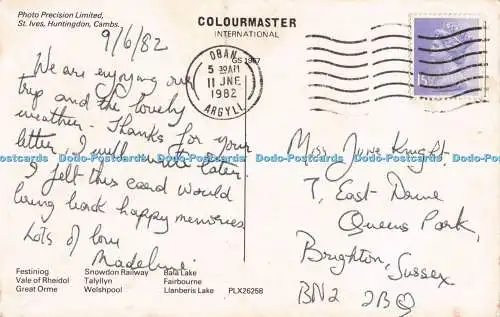 Photo Precision Limited,
St. Ives, Huntingdon, Cambs.
COLOURMASTER
INTERNATIONAL
GS 1967
9/6/82
We are enjoying our
trip and the lovely
weather. Thanks for your
letter, I will write later
I felt this card would
bring back happy memories
Lots of love
Madeline
OBAN
5 30AM
11 JNE
1982
ARGYLL
Miss June Knight.
7, East-Dene
Queens Park,
Brighton, Sussex
BN2 2B
Festiniog Snowdon Railway Bala Lake
Vale of Rheidol Talyllyn Fairbourne
Great Orme Welshpool Llanberis Lake PLX26258
Dodo-Postcards Dodo-Postcards Dodo-Postcards Dodo-Postcards Dodo-Postcards